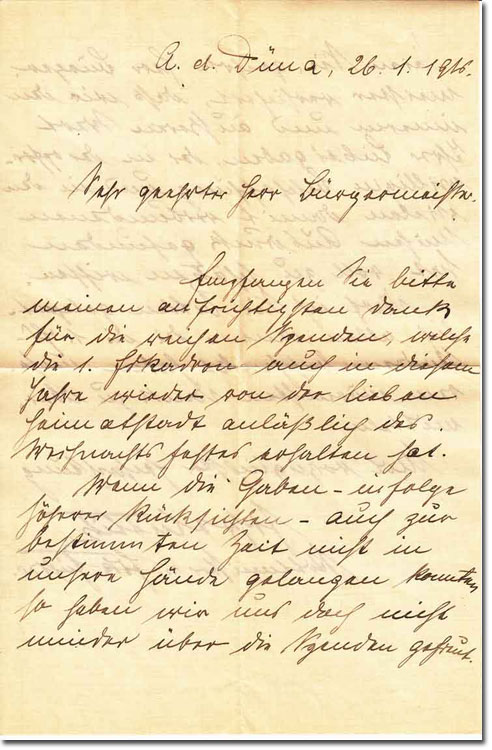 A. d. Düna, 26.1.1916.
Sehr geehrter Herr Bürgermeister.
Empfangen Sie bitte
meinen aufrichtigsten Dank
für die reichen Spenden, welche
die 1. Eskadron auch in diesem
Jahre wieder von der lieben
Heimatstadt anläßlich des
Weihnachtsfestes erhalten hat.
Wenn die Gaben – infolge
höherer Rücksichten – auch zur
bestimmten Zeit nicht in
unsere Hände gelangen konnten
so haben wir uns doch nicht
minder über die Spenden gefreut.